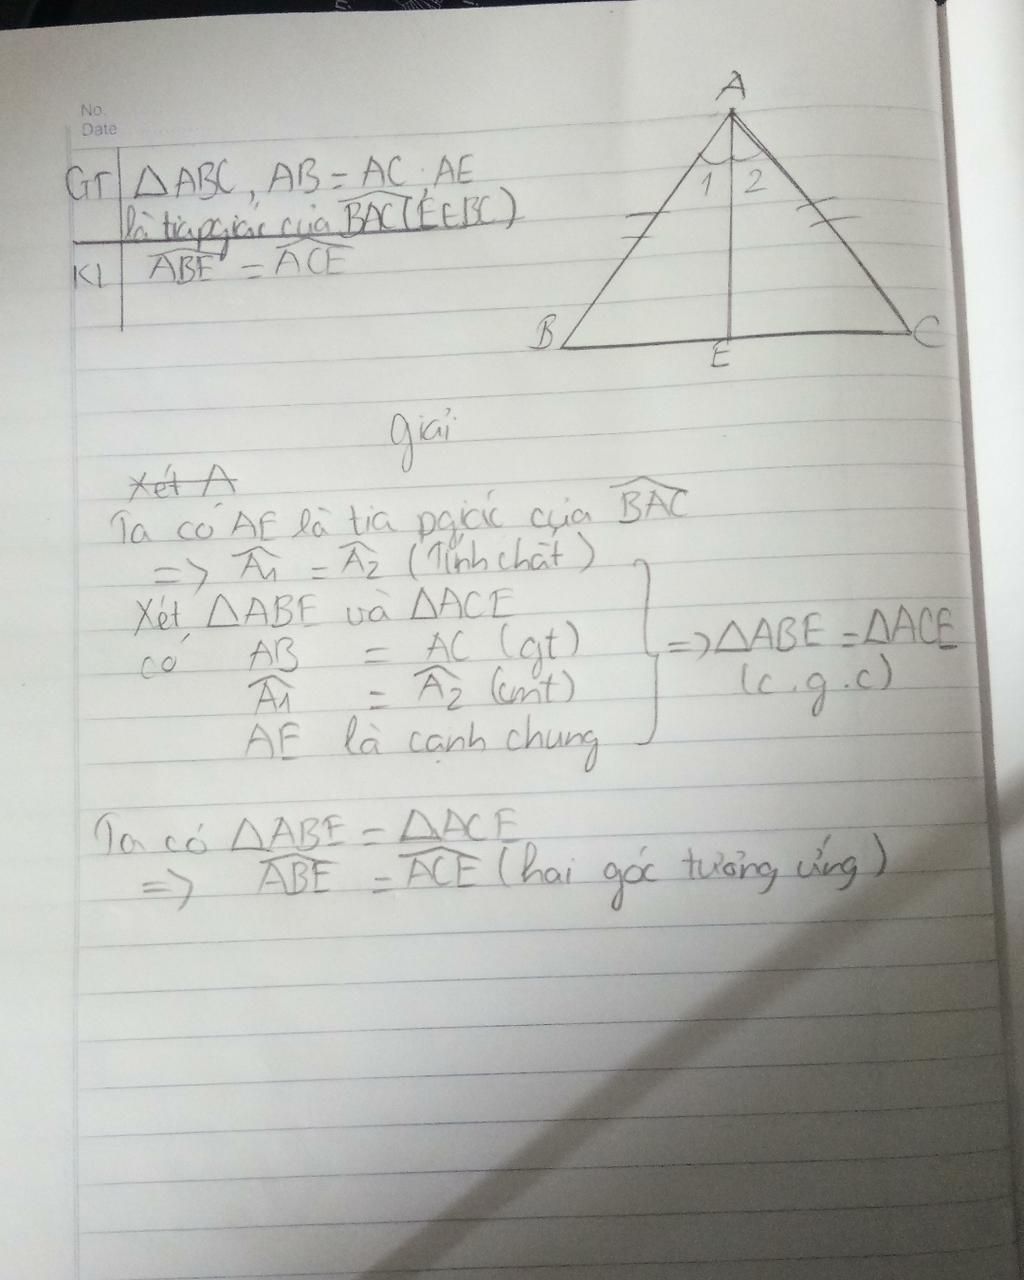 No.
Date
GT ΔABC, AB = AC. AE
là tia pgiác của BAC (E∈BC)
KL ABE = ACE
A
1 2
B
E
C
Giải
Xét A
Ta có AE là tia pgiác của BAC
=> A1 = A2 (Tính chất)
Xét ΔABE và ΔACE
có AB = AC (gt)
A1 = A2 (cmt)
AE là cạnh chung
=> ΔABE = ΔACE
(c.g.c)
Ta có ΔABE = ΔACE
=> ABE = ACE (hai góc tương ứng)